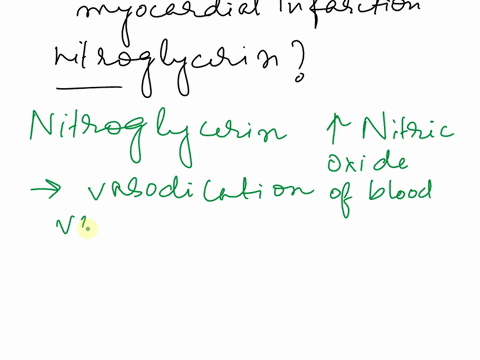 myocardial infarction
nitroglycerin?
Nitroglycerin ↑ Nitric
oxide
→ vasodication of blood
v